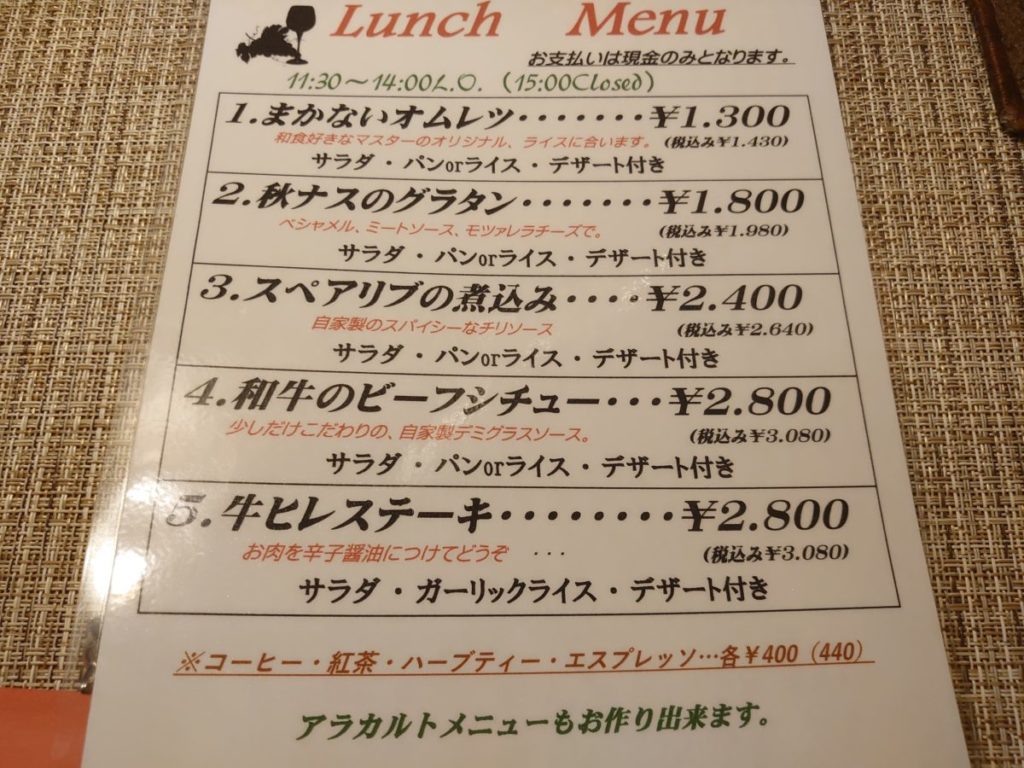 Lunch Menu
お支払いは現金のみとなります。
11:30～14:00L.O. (15:00Closed)
1.まかないオムレツ・・・・・・・¥1.300
和食好きなマスターのオリジナル、ライスに合います。(税込み¥1.430)
サラダ・パンorライス・デザート付き
2.秋ナスのグラタン・・・・・・・¥1.800
ベシャメル、ミートソース、モツァレラチーズで。 (税込み¥1.980)
サラダ・パンorライス・デザート付き
3.スペアリブの煮込み・・・・¥2.400
自家製のスパイシーなチリソース (税込み¥2.640)
サラダ・パンorライス・デザート付き
4.和牛のビーフシチュー・・・¥2.800
少しだけこだわりの、自家製デミグラスソース。 (税込み¥3.080)
サラダ・パンorライス・デザート付き
5.牛ヒレステーキ・・・・・・・・・¥2.800
お肉を辛子醤油につけてどうぞ ・・・ (税込み¥3.080)
サラダ・ガーリックライス・デザート付き
※コーヒー・紅茶・ハーブティー・エスプレッソ…各¥400（440）
アラカルトメニューもお作り出来ます。